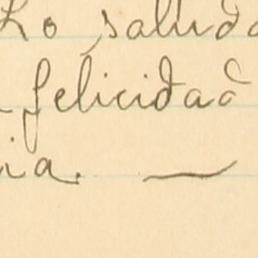 Lo saluda
felicidad
ia. —